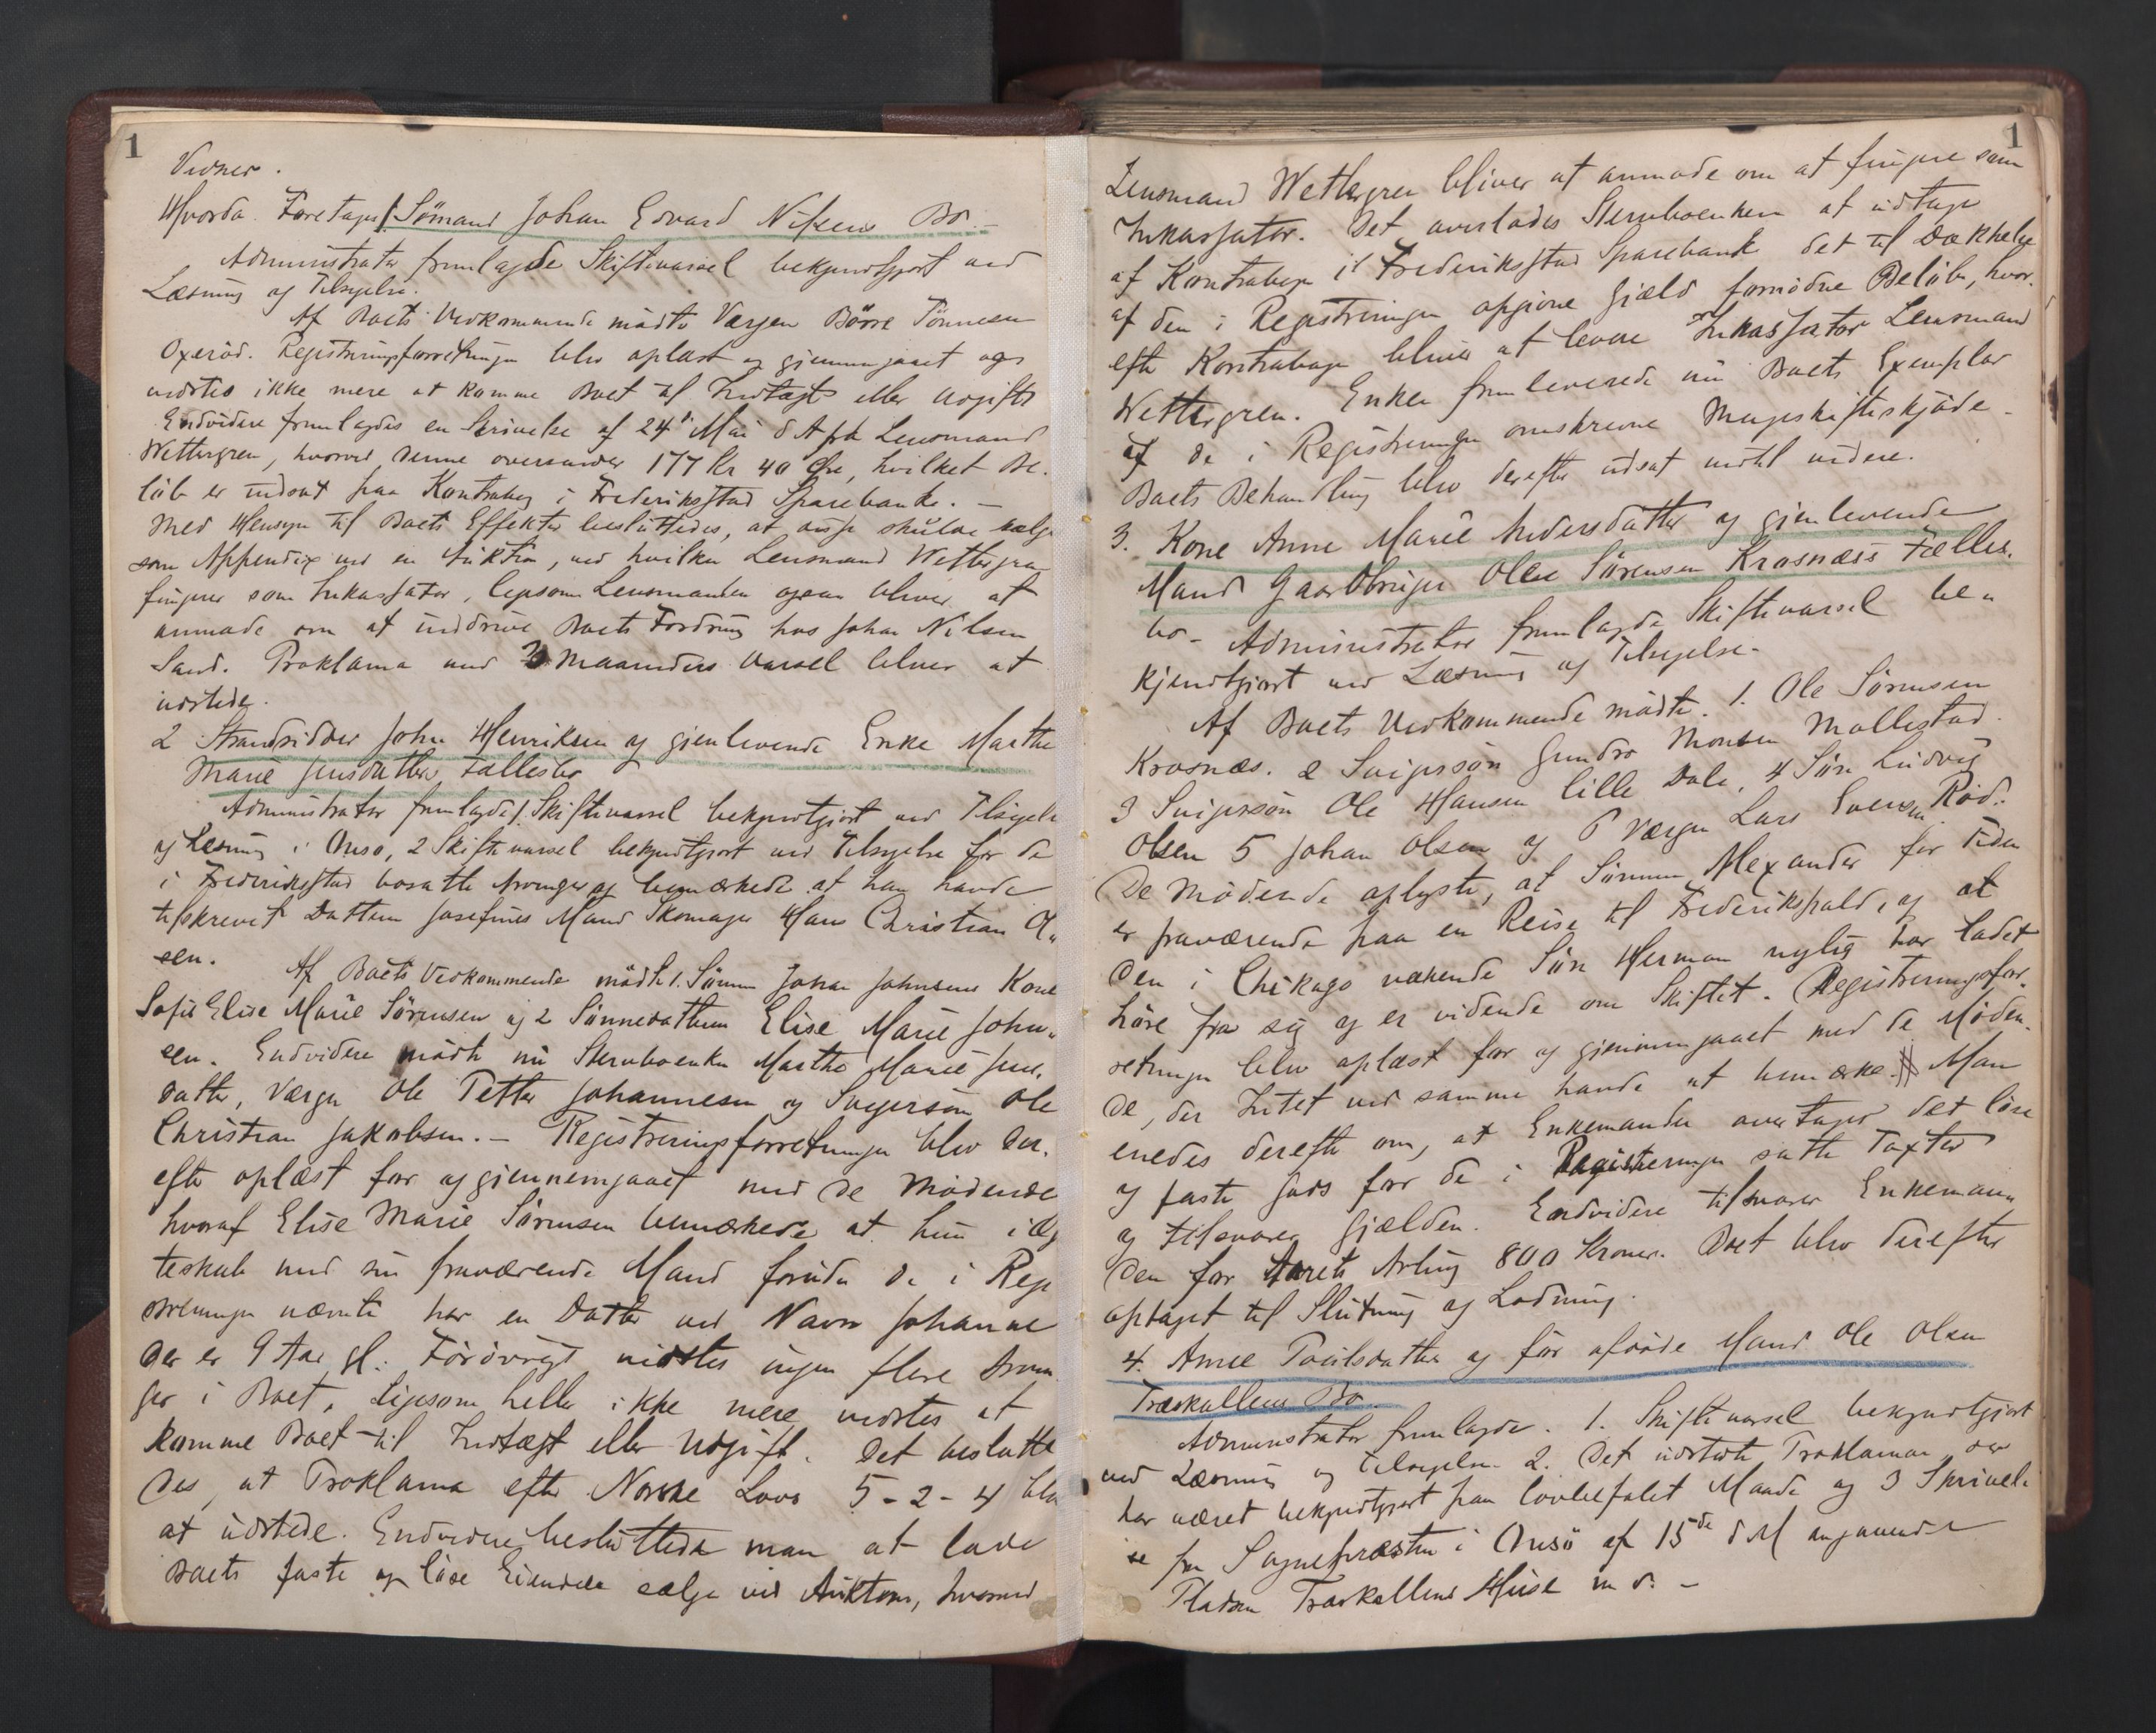 1
Vidner.
Hvorda. Foretages 1. Sömand Johan Edvard Nilsens Bo. -
Administrator fremlagde Skiftevarsel bekjendtgjort ved
Læsning og Tilsigelse.
Af Boets Vedkommende mödte Værgen Börre Tönnesen
Oxeröd. Registreringsforretningen blev oplæst og gjennemgaaet og
vidstes ikke mere at komme Boet til Indtægt eller Udgift
Endvidere fremlagdes en Skrivelse af 24de Mai d A fra Lensmand
Wettergren, hvorved denne oversender 177 Kr 40 Öre, hvilket Be-
löb er indsat paa Kontrabog i Frederiksstad Sparebank. -
Med Hensyn til Boets Effekter besluttedes, at disse skulde sælges
som Appendix ved en Auktion, ved hvilken Lensmand Wettergren
fungerer som Inkassator, ligesom Lensmanden ogsaa bliver at
anmode om at inddrive Boets Fordring hos Johan Nilsen
Sand. Proklama med 3 Maaneders Varsel bliver at
udstede.
2 Strandsidder John Henriksen og gjenlevende Enke Marthe
Marie Jensdatters Fællesbo
Administrator fremlagde 1. Skiftevarsel bekjendtgjort ved Tilsigelse
og Læsning i Onsö, 2 Skiftevarsel bekjendtgjort ved Tilsigelse for de
i Frederiksstad bosatte Arvinger og bemærkede at han havde
tilskrevet Datteren Josefines Mand Skomager Hans Christian Ol„
sen. Af Boets Vedkommende mödte 1. Sönnen Johan Johnsens Kone
Sofie Elise Marie Sörensen og 2 Sönnedatteren Elise Marie John„
sen. Endvidere mödte nu Stervboenken Marthe Marie Jens„
datter, Værgen Ole Petter Johannesen og Svigersön Ole
Christian Jakobsen. - Registreringsforretningen blev der„
efter oplæst for og gjennemgaaet med de Mödende
hvoraf Elise Marie Sörensen bemærkede at hun i Æg
teskab med sin fraværende Mand foruden de i Regi
streringen nævnte har en Datter ved Navn Johanne
der er 9 Aar gl. Forövrigt vidstes ingen flere Arvin
ger i Boet, ligesom heller ikke mere vidstes at
komme Boet til Indtægt eller Udgift. Det beslutte
des, at Proklama efter Norske Lovs 5-2-4 blev
at udstede. Endvidere besluttede man at lade
Boets faste og löse Eiendele sælge ved Auktion, hvorved
1
Lensmand Wettergren bliver at anmode om at fungere som
Inkassator. Det overlades Stervboenken at udtage
af Kontrabogen i Frederiksstad Sparebank det til Dækkelse
af den i Registreringen opgivne Gjæld fornödne Belöb, hvor-
efter Kontrabogen bliver at levere Inkassator Lensmand
Wettergren. Enken fremleverede nu Boets Exemplar
af de i Registreringen omskrevne Mageskifteskjöde.
Boets Behandling blev derefter udsat indtil videre.
3. Kone Anne Marie Andersdatter og gjenlevende
Mand Gaardbruger Olea Sörensen Krosnæs Fælles-
bo - Administrator fremlagde Skiftevarsel be„
kjendtgjort ved Læsning og Tilsigelse.
Af Boets Vedkommende mödte. 1. Ole Sörensen
Krosnæs. 2 Svigersön Gundro Monsen Mollestad.
3 Svigersön Ole Hansen lille Dale, 4 Sön Ludvig
Olsen 5 Johan Olsen og 6 Værgen Lars Evensen Röd.
De Mödende oplyste, at Sönnen Alexander for Tiden
er fraværende paa en Reise til Frederikshald, og at
den i Chikago værende Sön Herman nylig har ladet
höre fra sig og er vidende om Skiftet. Registreringsfor-
retningen blev oplæst for og gjennemgaaet med de Möden-
de, der Intet ved samme havde at bemærke. Man
enedes derefter om, at Enkemanden overtager det löse
og faste Gods for de i Registreringen satte Taxter
og tilsvarer Gjælden. Endvidere tilsvarer Enkeman„
den for Aarets Avling 800 Kroner. Boet blev derefter
optaget til Slutning og Lodning.
4. Anne Poulsdatter og för afdöde Mand Ole Olsen
Træskallens Bo.
Administrator fremlagde. 1. Skiftevarsel bekjendtgjort
ved Læsning og Tilsigelse 2. Det udstedte Proklama der
har været bekjendtgjort paa lovbefalet Maade og 3 Skrivel-
se fra Sognepræsten i Onsö af 15de d M angaaende
Pladsen Træskallens Huse m v. -